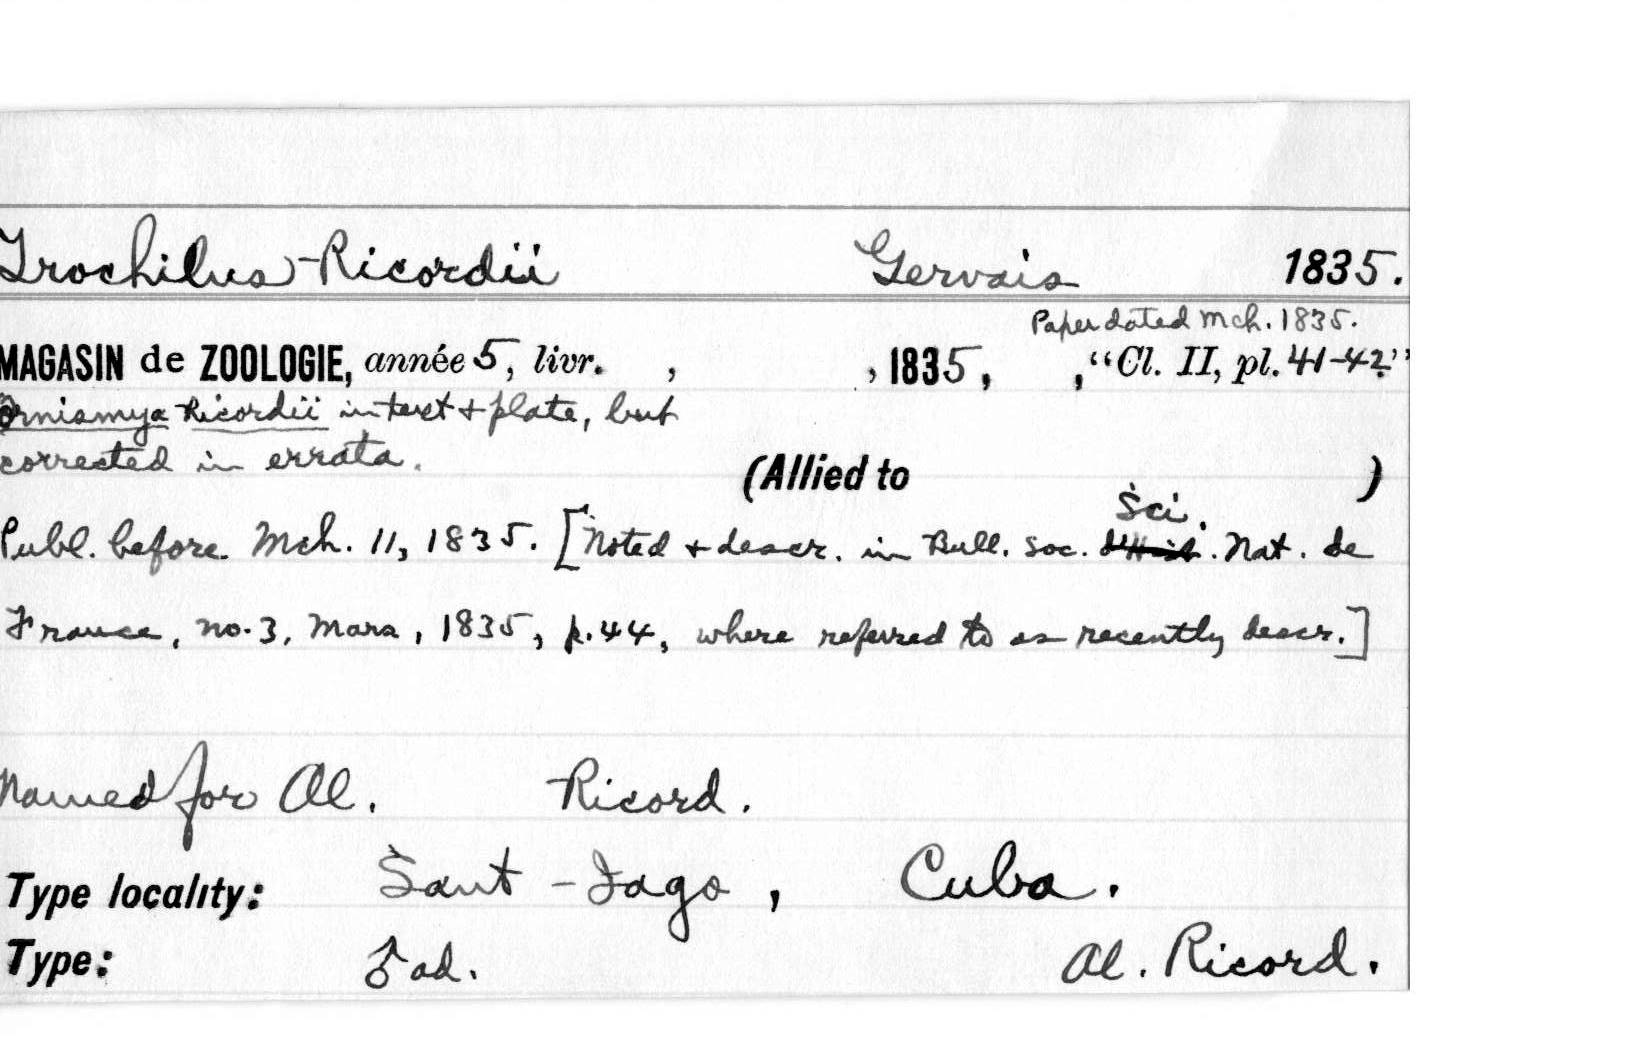 Trochilus Ricordii Gervais 1835.
Paper dated Mch. 1835.
MAGASIN de ZOOLOGIE, année 5, livr. , , 1835, , "Cl. II, pl. 41-42."
Ornismya Ricordii in text + plate, but
corrected in errata.
(Allied to )
Sci.
Publ. before Mch. 11, 1835. [Noted + descr. in Bull. Soc. d'Hist. Nat. de
France, no. 3, Mars, 1835, p. 44, where referred to as recently descr.]
Named for Al. Ricord.
Type locality: Sant-Iago, Cuba.
Type: ♂ ad. Al. Ricord.